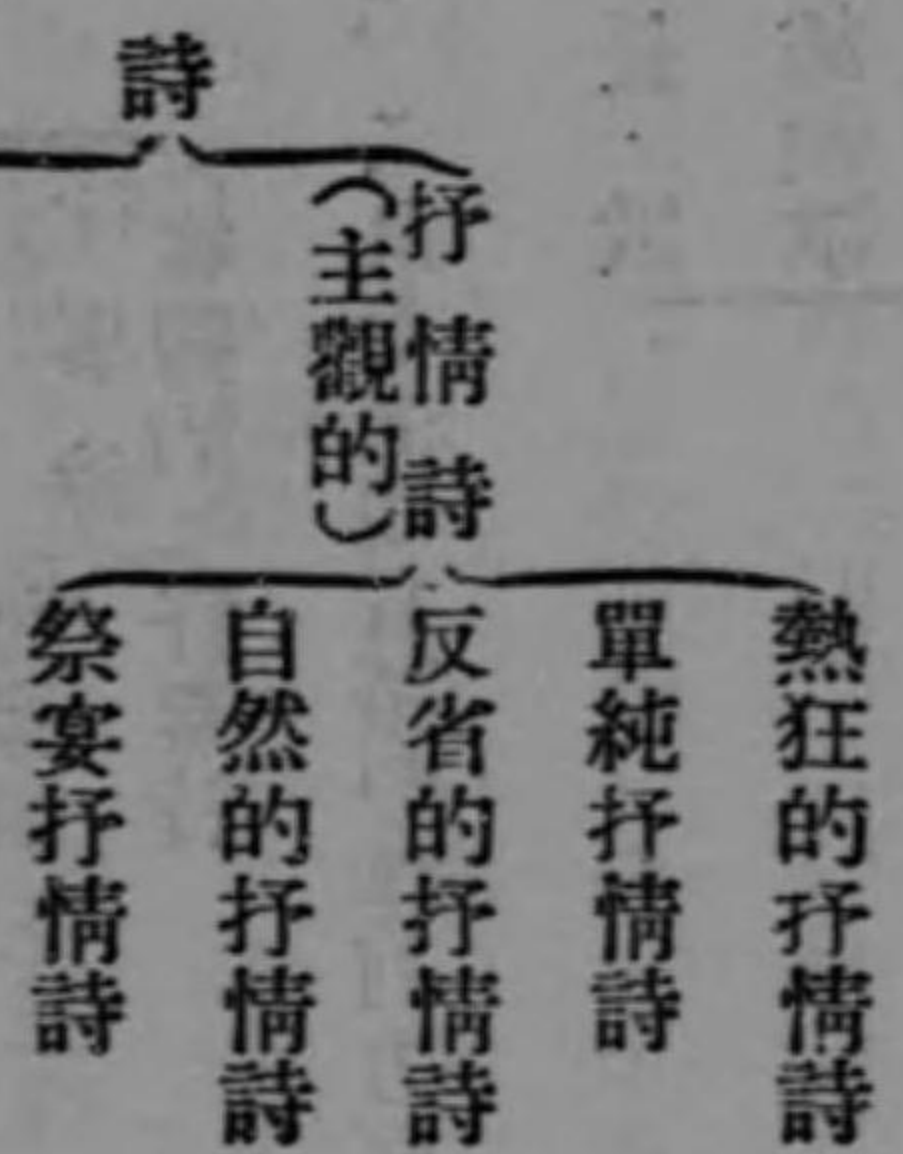 詩
抒情詩
(主觀的)
熱狂的抒情詩
單純抒情詩
反省的抒情詩
自然的抒情詩
祭宴抒情詩